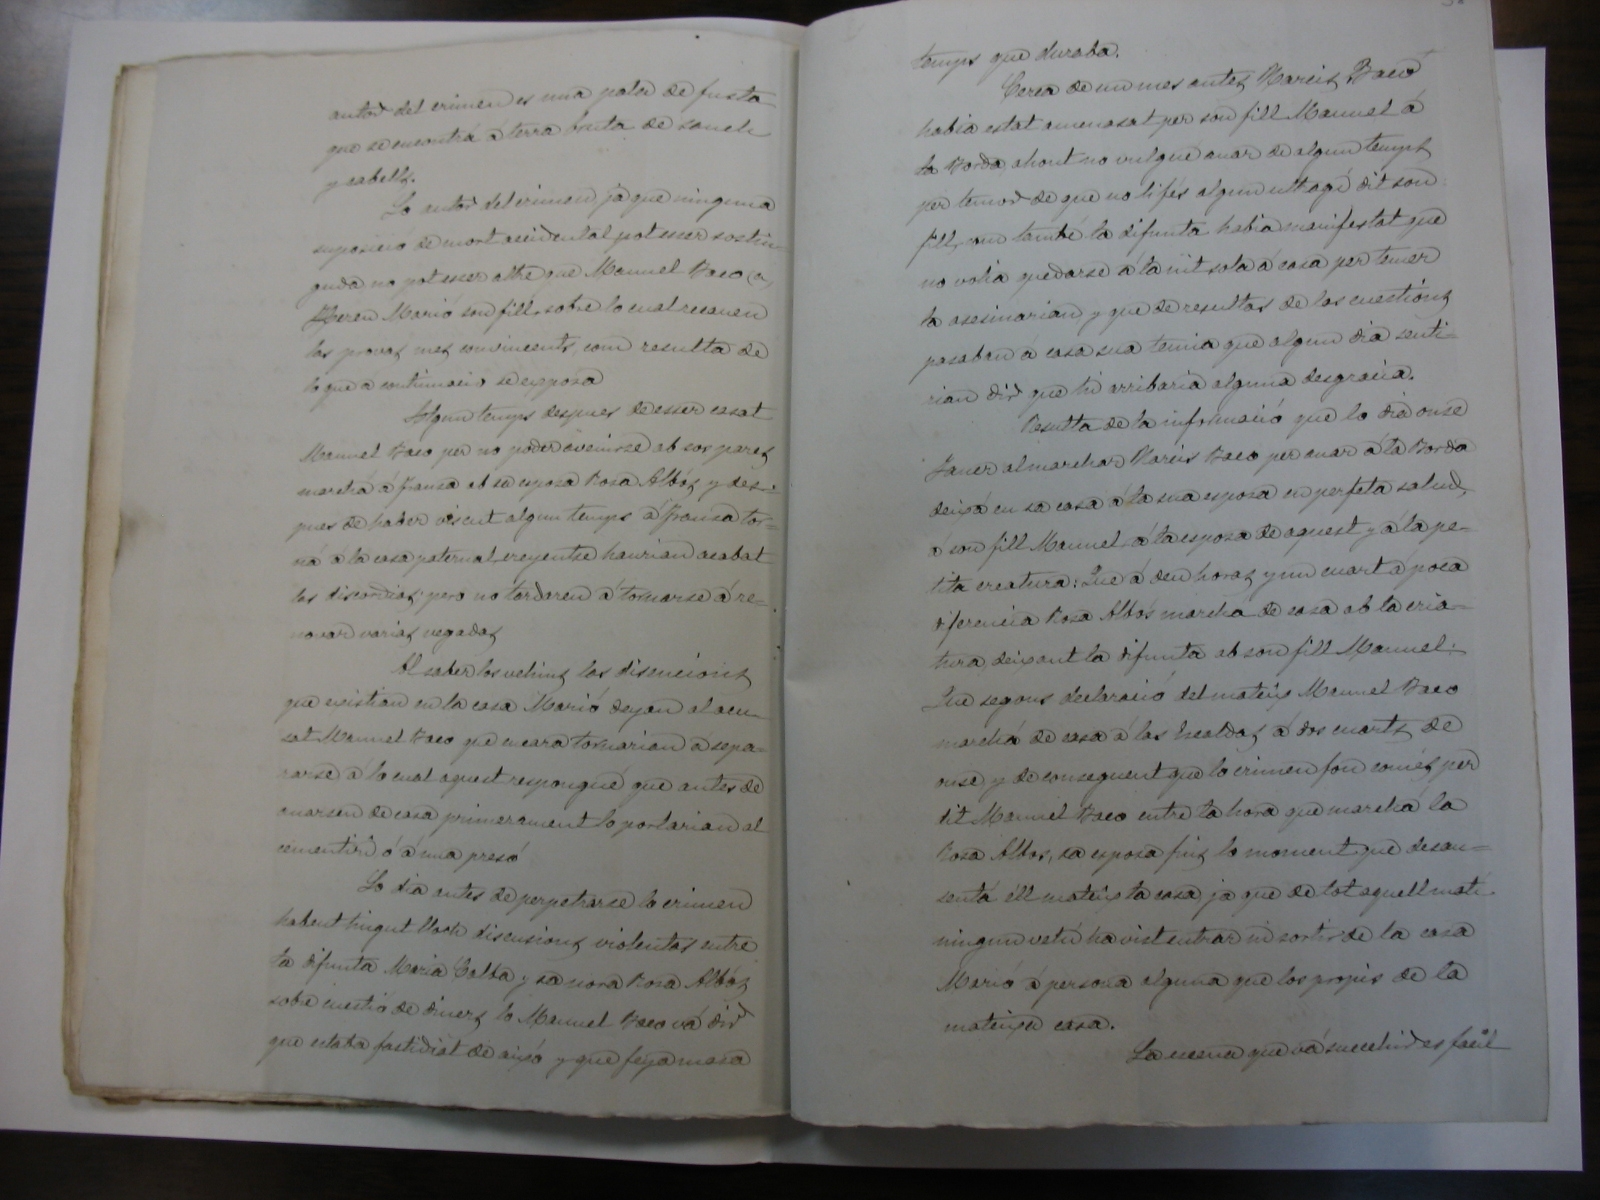 autor del crimen es una pala de fusta
que se encontrá á terra bruta de sanch
y cabells.
Lo autor del crimen, ja que ninguna
suposició de mort accidental pot esser sostin-
guda no pot esser altre que Manuel Baco (a)
Hereu Marió son fill, sobre lo cual recauen
las provas mes convincents, com resulta de
lo que a continuació se exposa
Algun temps despues de esser casat
Manuel Baco per no poder avenirse ab sos pares
marchá á fransa ab sa esposa Rosa Albós y des-
pues de haber viscut algun temps á fransa tor-
ná á la casa paternal, creyentse haurian acabat
las discordias; pero no tardaren á tornarse á re-
novar varias vegadas
Al saber los vehins las disencions
que existian en la casa Marió deyan al acu-
sat Manuel Baco que encara tornarian á sepa-
rarse á lo cual aquest respongué que antes de
anarsen de casa primerament lo portarian al
cementiri ó á una presó
Lo dia antes de perpetrarse lo crimen
habent tingut lloch discusions violentas entre
la difunta Maria Calba y sa nora Rosa Albós
sobre cuestió de diners, lo Manuel Baco vá dir
que estaba fastidiat de aixó y que feya massa
temps que duraba.
Cerca de un mes antes Narcis Baco
habia estat amenasat per son fill Manuel á
la Borda, ahont no vulgué anar de algun temps
per temor de que no li fés algun ultratge dit son
fill, com també la difunta habia manifestat que
no volia quedarse á la nit sola á casa per temer
la asesinarian, y que de resultas de las cuestions
pasaban á casa sua temia que algun dia senti-
rian dir que hi arribaria alguna desgracia.
Resulta de la informació que lo dia onse
Janer al marchar Narcis Baco per anar á la Borda
deixá en sa casa á la sua esposa en perfeta salud,
á son fill Manuel, á la esposa de aquest y á la pe-
tita creatura: Que á deu horas y un cuart á poca
diferencia Rosa Albós marchá de casa ab la cria-
tura, deixant la difunta ab son fill Manuel:
Que segons declaració del mateix Manuel Baco
marchá de casa á las á dos cuarts de
onse y de conseguent que lo crimen fou comés per
dit Manuel Baco entre la hora que marchá la
Rosa Albós, sa esposa fins lo moment que desau-
sentá éll mateix la casa, ja que de tot aquell matí
ningun vehí ha vist entrar ni sortir de la casa
Marió á persona alguna que los propis de la
mateixa casa.
La escena que vá succehir es facil